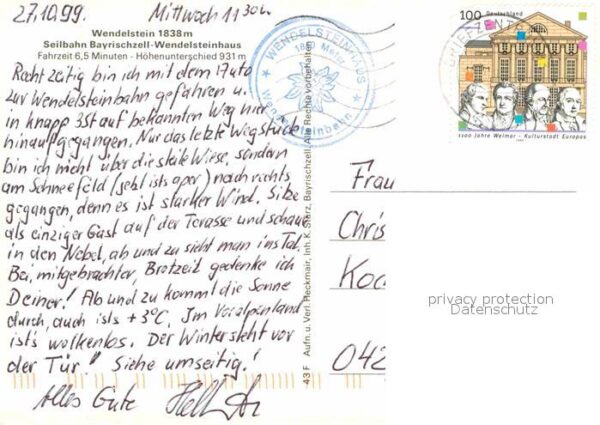 27.10.99. Mittwoch 11 30 Uhr
Wendelstein 1838 m
Seilbahn Bayrischzell-Wendelsteinhaus
Fahrzeit 6,5 Minuten - Höhenunterschied 931 m
Rechtzeitig bin ich mit dem Auto
zur Wendelsteinbahn gefahren u.
in knapp 3 St auf bekannten Weg hier
hinaufgegangen. Nur das letzte Wegstück
bin ich nicht über die steile Wiese, sondern
am Schneefeld (jetzt ists aper) nach rechts
gegangen, denn es ist starker Wind. Sitze
als einziger Gast auf der Terasse und schaue
in den Nebel, ab und zu sieht man ins Tal.
Bei, mitgebrachter, Brotzeit gedenke ich
Deiner! Ab und zu kommt die Sonne
durch, auch ists +3°C. Im Voralpenland
ist's wolkenlos. Der Winter steht vor
der Tür" Siehe umseitig!
Alles Gute
WENDELSTEINHAUS
1838 Meter
Wendelsteinbahn
43 F Aufn. u. Verl. Heckmair, Inh. K. Starz, Bayrischzell, Alle Rechte vorbehalten
BRIEFZENTRUM
100 Deutschland
1100 Jahre Weimar - Kulturstadt Europas
Frau
Chris
Koc
042
privacy protection
Datenschutz